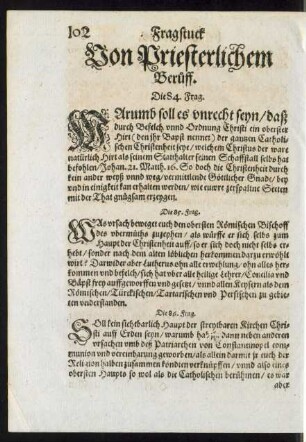 102 Fragstuck
Von Priesterlichem
Berüff.
Die 84. Frag.
WArumb soll es vnrecht seyn/ daß
durch Befelch vnnd Ordnung Christi ein oberster
Hirt (den ihr Bapst nennet) der gantzen Catholi-
schen Christenheit seye/ welchem Christus der ware
natürlich Hirt als seinem Statthalter seinen Schaffstall selbs hat
befohlen/ Johan. 21. Matth. 16. So doch die Christenheit durch
kein ander weyß vnnd weg/ vermittelst Göttlicher Gnad/ bey
vnd in einigkeit kan erhalten werden/ wie ewere zerspaltne Secten
mit der That gnügsam erzeygen.
Die 85. Frag.
WAs vrsach beweget euch den obersten Römischen Bischoff
des vbermüths zuzeyhen/ als würffe er sich selbs zum
Haupt der Christenheit auff/ so er sich doch nicht selbs er-
hebt/ sonder nach dem alten löblichen herkommen darzu erwöhlt
wirt? Darwider aber Lutherus ohn alle erwöhlung/ ohn alles her-
kommen vnd befelch/ sich hat vber alle heilige Lehrer/ Concilia vnd
Bäpst frey auffgeworffen vnd gesetzt/ vnnd allen Keysern als dem
Römischen/ Türckischen/ Tartarischen vnd Persischen zu gebie-
ten vnderstanden.
Die 86. Frag.
SOll kein sichtbarlich Haupt der streytbaren Kirchen Chri-
sti auff Erden seyn/ warumb hat dann neben anderen
vrsachen vmb deß Patriarchen von Constantinopel com-
munion vnd vereinbarung geworben/ als allein darmit je euch der
Religion halben zusammen kondten verknüpffen/ vnnd also eines
obersten Haupts so wol als die Catholischen berühmen/ es war
aber